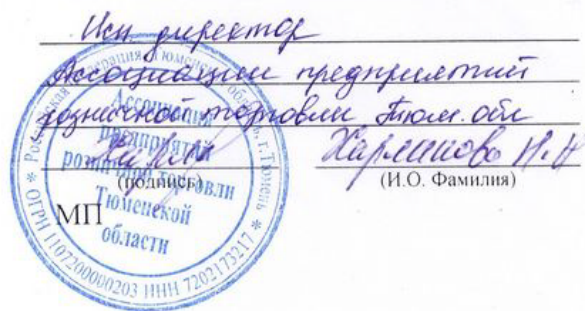 Исп директор
Ассоциации предприятий
розничной торговли Тюм. обл
Харланова Н.Н
(подпись) (И.О. Фамилия)
МП
Российская Федерация Тюменская область, г. Тюмень
* ОГРН 1107200000203 ИНН 7202173217 *
Ассоциация
предприятий
розничной торговли
Тюменской
области